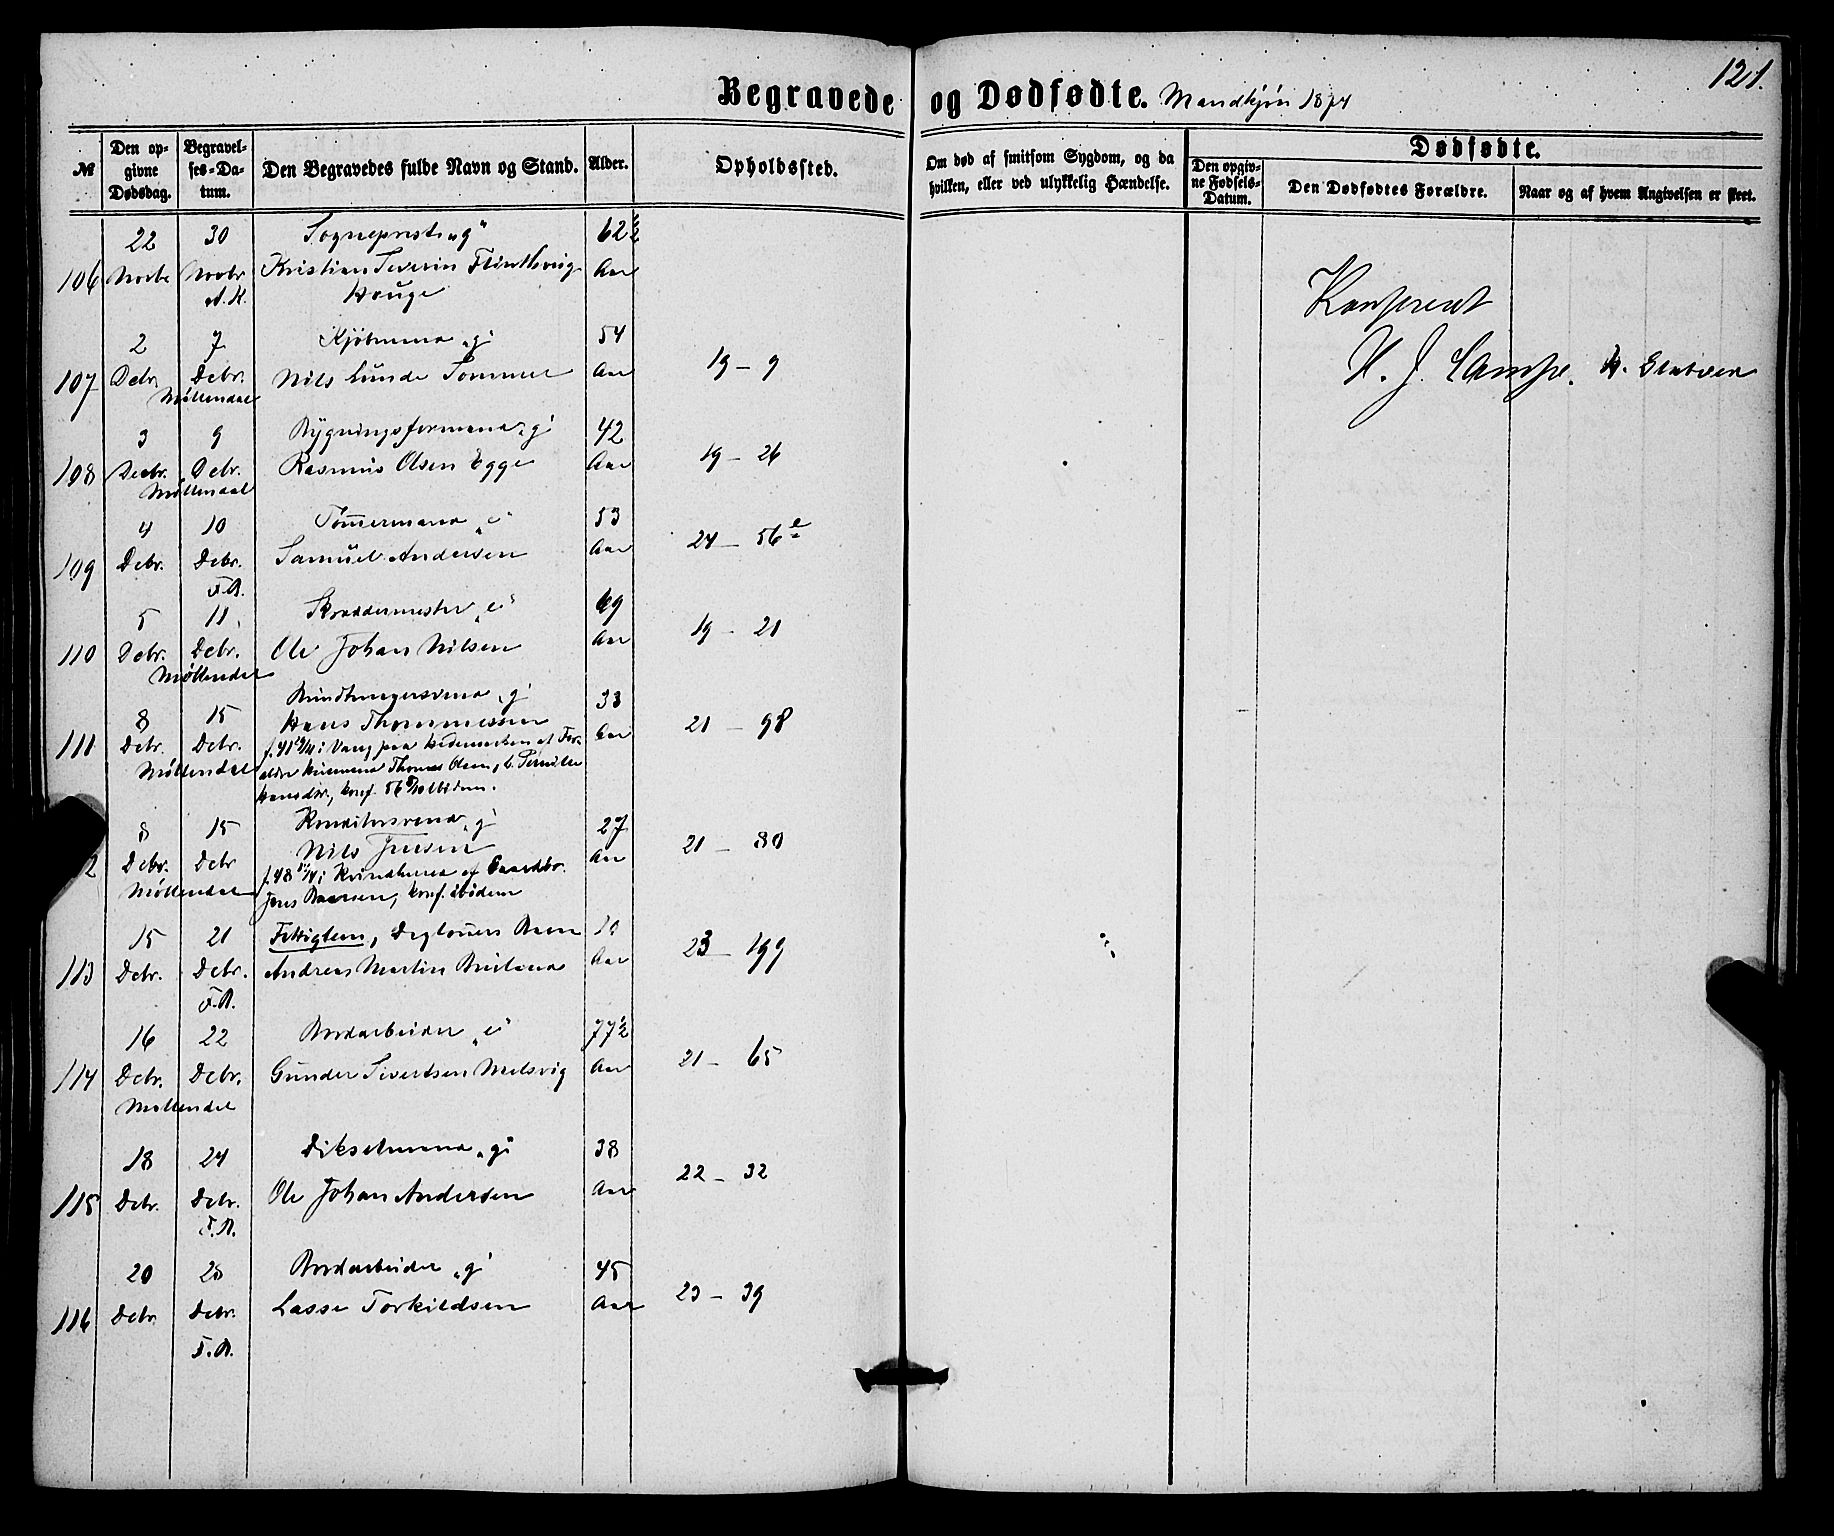 121.
Begravede og Dødfødte. Mandkjøn 1874
№
Den opgivne Dødsdag.
Begravelses-Datum.
Den Begravedes fulde Navn og Stand.
Alder.
Opholdssted.
Om død af smitsom Sygdom, og da hvilken, eller ved ulykkelig Hændelse.
Dødfødte.
Den opgivne Fødsels-Datum.
Den Dødfødtes Forældre.
Naar og af hvem Angivelsen er skeet.
22 30 Sognepræst „g" 62½
106 Novbr Novbr Kristian Severin Flinthoug Aar
A.K. Houge
2 7 Kjøbmand „g" 54
107 Debr. Debr. Nils Lunde Sommer Aar 19 – 9
Møllendal
3 9 Bygningsformand „g" 42
108 Decbr. Debr. Rasmus Olsen Egge Aar 19 – 26
Møllendal
4 10 Tømermand „e" 53
109 Debr. Debr. Samuel Andersen Aar 24 – 56
F.A.
5 11 Skræddermester „e" 69
110 Debr. Debr. Ole Johan Nilsen Aar 19 – 21
Møllendal
8 15 Bundtmagersvend „g" 33
111 Debr. Debr. Hans Thommessen Aar 21 – 98
f. 41 i Vang paa Hedemarken af For-
ældre Husmand Thomas Olsen,
Møllendal
Hansdtr., konf. 56 ibidem.
8 15 Konditorsvend „g" 27
2 Debr. Debr Nils Jensen Aar 21 – 80
f. 48 i Kvindherred af Gaardbr.
Møllendal
Jens konf. ibidem
15 21 Fattiglem, Daglønners Barn 10
113 Debr. Debr. Andreas Martin Aar 23 – 199
F.A.
16 22 Bordarbeider „e" 77½
114 Debr. Debr. Gunder Sivertsen Melsvig Aar 21 – 65
Møllendal
18 24 „g" 38
115 Debr. Debr. Ole Johan Andersen Aar 22 – 32
F.A.
20 28 Bordarbeider „g" 45
116 Debr. Debr. Lasse Torkildsen Aar 23 – 39
F.A.
Konfereret
H. J. Lampe.